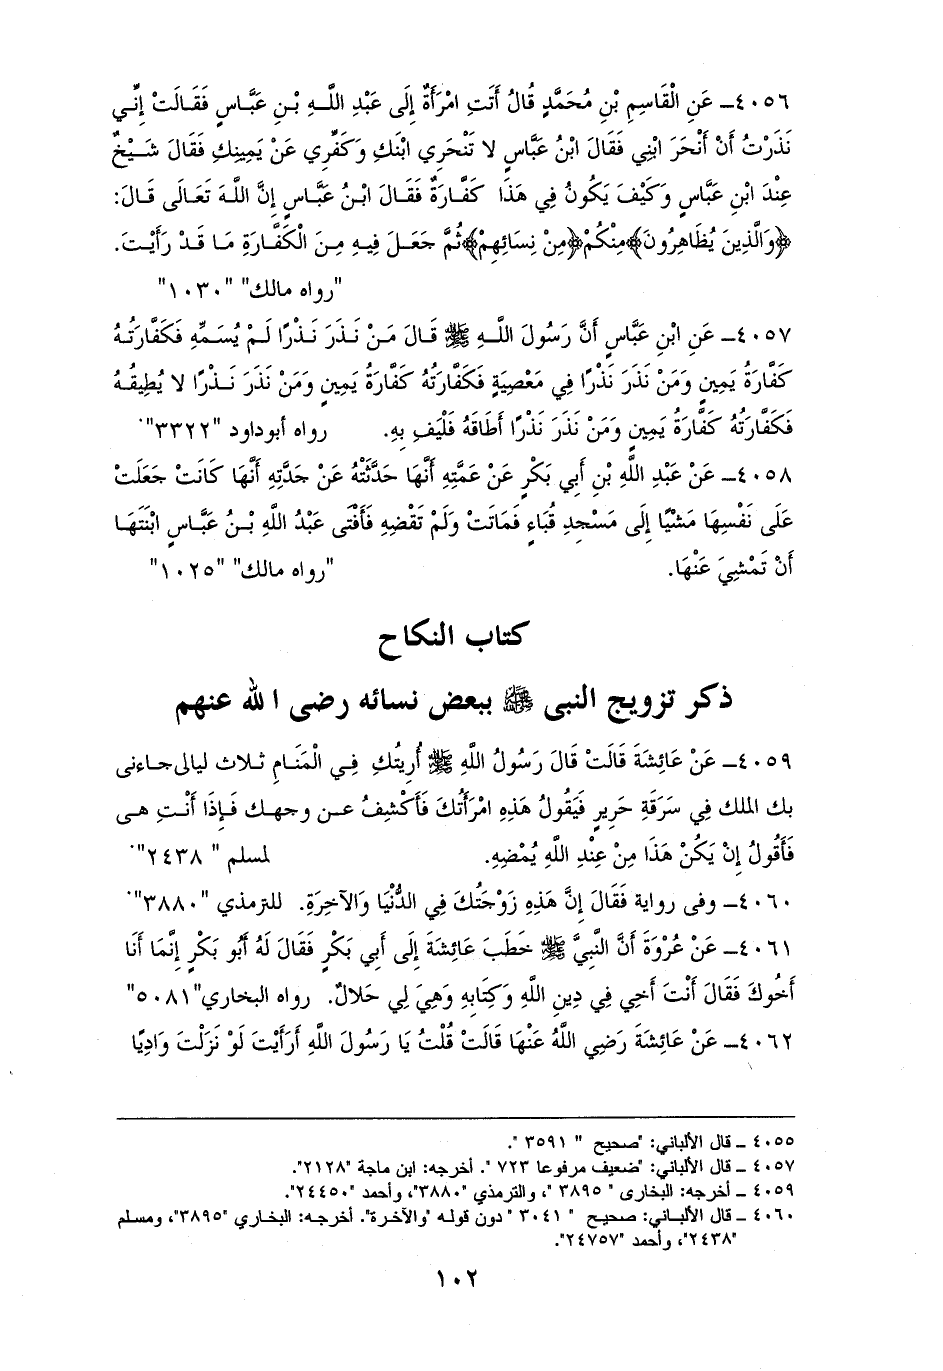 ٤٠٥٦ـ عَنِ الْقَاسِمِ بْنِ مُحَمَّدٍ قَالُ أَتَتِ امْرَأَةٌ إِلَى عَبْدِ اللَّهِ بْنِ عَبَّاسٍ فَقَالَتْ إِنِّي
نَذَرْتُ أَنْ أَنْحَرَ ابْنِي فَقَالَ ابْنُ عَبَّاسٍ لا تَنْحَرِي ابْنَكِ وَكَفِّرِي عَنْ يَمِينِكِ فَقَالَ شَيْخٌ
عِنْدَ ابْنِ عَبَّاسٍ وَكَيْفَ يَكُونُ فِي هَذَا كَفَّارَةٌ فَقَالَ ابْنُ عَبَّاسٍ إِنَّ اللَّهَ تَعَالَى قَالَ:
﴿وَالَّذِينَ يُظَاهِرُونَ﴾مِنْكُمْ﴿مِنْ نِسَائِهِمْ﴾ثُمَّ جَعَلَ فِيهِ مِنَ الْكَفَّارَةِ مَا قَدْ رَأَيْتَ.
"رواه مالك" "١٠٣٠"
٤٠٥٧ـ عَنِ ابْنِ عَبَّاسٍ أَنَّ رَسُولَ اللَّهِ ﷺ قَالَ مَنْ نَذَرَ نَذْرًا لَمْ يُسَمِّهِ فَكَفَّارَتُهُ
كَفَّارَةُ يَمِينٍ وَمَنْ نَذَرَ نَذْرًا فِي مَعْصِيَةٍ فَكَفَّارَتُهُ كَفَّارَةُ يَمِينٍ وَمَنْ نَذَرَ نَذْرًا لا يُطِيقُهُ
فَكَفَّارَتُهُ كَفَّارَةُ يَمِينٍ وَمَنْ نَذَرَ نَذْرًا أَطَاقَهُ فَلْيَفِ بِهِ. رواه أبوداود "٣٣٢٢".
٤٠٥٨ـ عَنْ عَبْدِ اللَّهِ بْنِ أَبِي بَكْرٍ عَنْ عَمَّتِهِ أَنَّهَا حَدَّثَتْهُ عَنْ جَدَّتِهِ أَنَّهَا كَانَتْ جَعَلَتْ
عَلَى نَفْسِهَا مَشْيًا إِلَى مَسْجِدِ قُبَاءٍ فَمَاتَتْ وَلَمْ تَقْضِهِ فَأَفْتَى عَبْدُ اللَّهِ بْنُ عَبَّاسٍ ابْنَتَهَا
أَنْ تَمْشِيَ عَنْهَا. "رواه مالك" "١٠٢٥"
كتاب النكاح
ذكر تزويج النبى ﷺ ببعض نسائه رضى الله عنهم
٤٠٥٩ـ عَنْ عَائِشَةَ قَالَتْ قَالَ رَسُولُ اللَّهِ ﷺ أُرِيتُكِ فِي الْمَنَامِ ثلاث ليالى جاءنى
بك الملك فِي سَرَقَةِ حَرِيرٍ فَيَقُولُ هَذِهِ امْرَأَتُكَ فَأَكْشِفُ عن وجهك فَإِذَا أَنْتِ هى
فَأَقُولُ إِنْ يَكُنْ هَذَا مِنْ عِنْدِ اللَّهِ يُمْضِهِ. لمسلم "٢٤٣٨".
٤٠٦٠ـ وفى رواية فَقَالَ إِنَّ هَذِهِ زَوْجَتُكَ فِي الدُّنْيَا وَالآخِرَةِ. للترمذي "٣٨٨٠".
٤٠٦١ـ عَنْ عُرْوَةَ أَنَّ النَّبِيَّ ﷺ خَطَبَ عَائِشَةَ إِلَى أَبِي بَكْرٍ فَقَالَ لَهُ أَبُو بَكْرٍ إِنَّمَا أَنَا
أَخُوكَ فَقَالَ أَنْتَ أَخِي فِي دِينِ اللَّهِ وَكِتَابِهِ وَهِيَ لِي حَلالٌ. رواه البخاري"٥٠٨١"
٤٠٦٢ـ عَنْ عَائِشَةَ رَضِي اللَّهُ عَنْهَا قَالَتْ قُلْتُ يَا رَسُولَ اللَّهِ أَرَأَيْتَ لَوْ نَزَلْتَ وَادِيًا
٤٠٥٥ ـ قال الألباني: "صحيح " ٣٥٩١ ".
٤٠٥٧ ـ قال الألباني: "ضعيف مرفوعا ٧٢٣ ". أخرجه: ابن ماجة "٢١٢٨".
٤٠٥٩ ـ أخرجه: البخارى " ٣٨٩٥ "، والترمذي "٣٨٨٠"، وأحمد "٢٤٤٥٠".
٤٠٦٠ ـ قال الألباني: صحيح " ٣٠٤١ " دون قوله "والآخرة". أخرجه: البخاري "٣٨٩٥"، ومسلم
"٢٤٣٨"، وأحمد "٢٤٧٥٧".
١٠٢